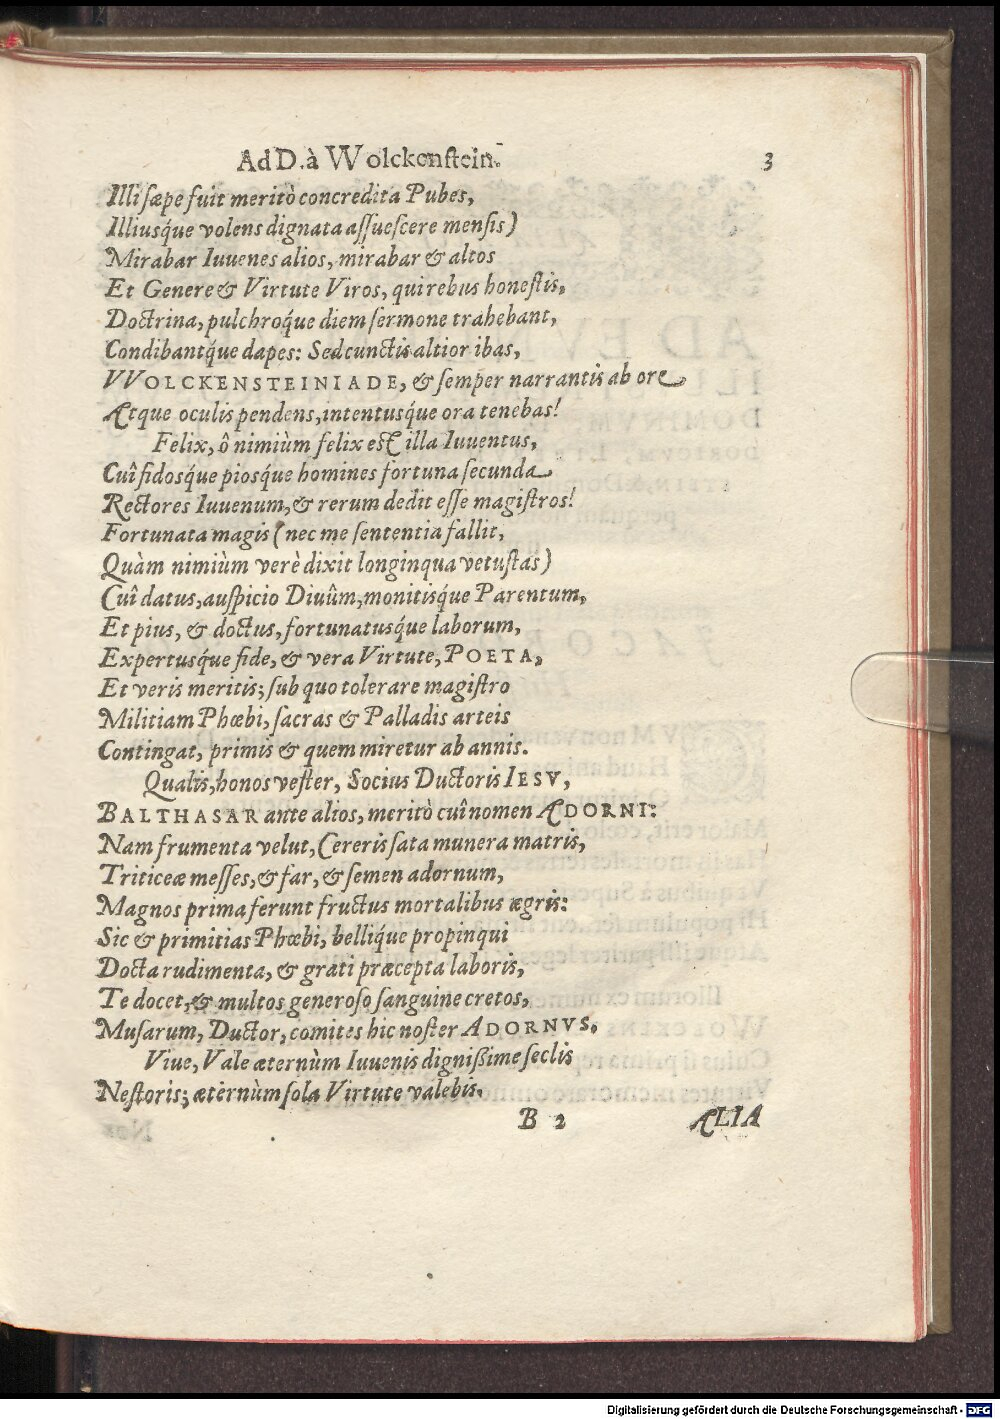 Ad D. à VVolckenſtein. 3
Illi ſæpe fuit meritò concredita Pubes,
Illiusq́ue volens dignata aſſueſcere menſis)
Mirabar Iuuenes alios, mirabar & altos
Et Genere & Virtute Viros, qui rebus honeſtis,
Doctrina, pulchroq́ue diem ſermone trahebant,
Condibantq́ue dapes: Sed cunctis altior ibas,
VVOLCKENSTEINIADE, & ſemper narrantis ab ore
Atque oculis pendens, intentusq́ue ora tenebas!
Felix, ô nimiùm felix est illa Iuuentus,
Cuî fidosq́ue piosq́ue homines fortuna ſecunda
Rectores Iuuenum, & rerum dedit eſſe magiſtros!
Fortunata magis (nec me ſententia fallit,
Quàm nimiùm verè dixit longinqua vetuſtas)
Cuî datus, auſpicio Diuûm, monitisq́ue Parentum,
Et pius, & doctus, fortunatusq́ue laborum,
Expertusq́ue fide, & vera Virtute, POETA,
Et veris meritis; ſub quo tolerare magiſtro
Militiam Phœbi, ſacras & Palladis arteis
Contingat, primis & quem miretur ab annis.
Qualis, honos veſter, Socius Ductoris IESV,
BALTHASAR ante alios, meritò cuî nomen ADORNI:
Nam frumenta velut, Cereris ſata munera matris,
Triticeæ meſſes, & far, & ſemen adornum,
Magnos prima ferunt fructus mortalibus ægris:
Sic & primitias Phœbi, belliq́ue propinqui
Docta rudimenta, & grati præcepta laboris,
Te docet, & multos generoſo ſanguine cretos,
Muſarum, Ductor, comites hic noſter ADORNVS.
Viue, Vale æternùm Iuuenis digniſsime ſeclis
Neſtoris; æternùm ſola Virtute valebis.
B 2 ALIA
Digitalisierung gefördert durch die Deutsche Forschungsgemeinschaft - DFG